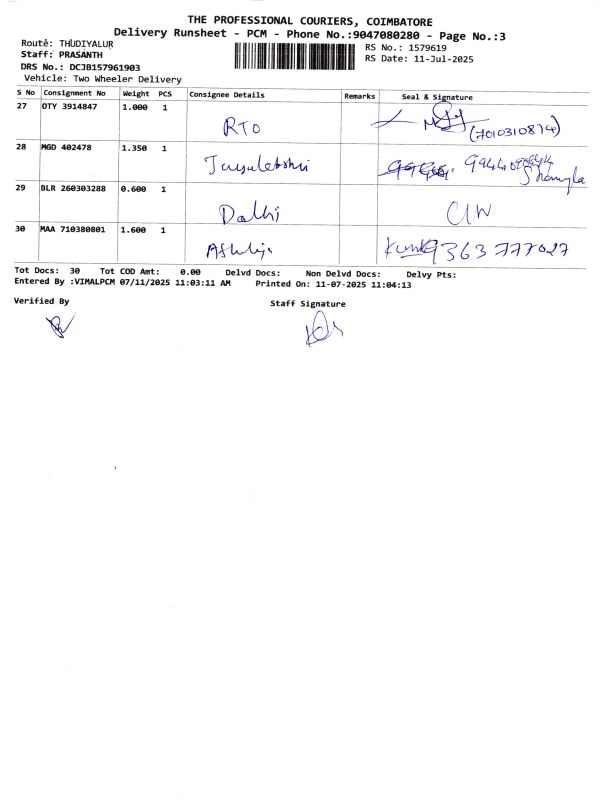 THE PROFESSIONAL COURIERS, COIMBATORE
Delivery Runsheet - PCM - Phone No.:9047080280 - Page No.:3
Route: THUDIYALUR
Staff: PRASANTH
DRS No.: DCJB157961903
Vehicle: Two Wheeler Delivery
RS No.: 1579619
RS Date: 11-Jul-2025
S No Consignment No Weight PCS Consignee Details Remarks Seal & Signature
27 OTY 3914847 1.000 1 RTO (7010310874)
28 MGD 402478 1.350 1
29 BLR 260303288 0.600 1
30 MAA 710380801 1.600 1 9363777027
Tot Docs: 30 Tot COD Amt: 0.00 Delvd Docs: Non Delvd Docs: Delvy Pts:
Entered By :VIMALPCM 07/11/2025 11:03:11 AM Printed On: 11-07-2025 11:04:13
Verified By
Staff Signature